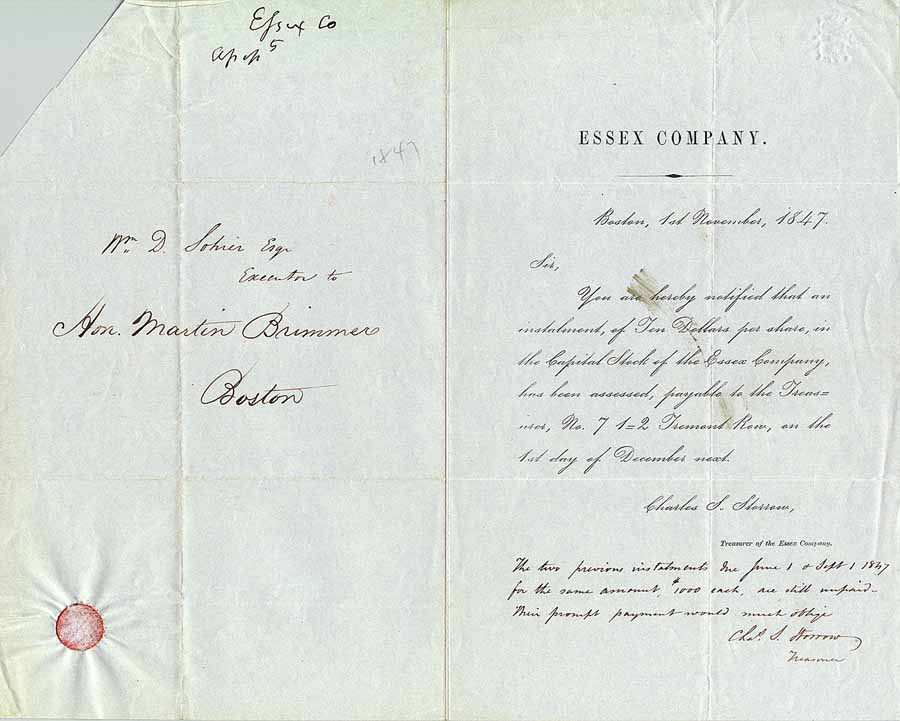 Essex Co
1847
Wm. D. Sohier Esqr
Executor to
Hon. Martin Brimmer
Boston
ESSEX COMPANY.
Boston, 1st November, 1847.
Sir,
You are hereby notified that an
instalment, of Ten Dollars per share, in
the Capital Stock of the Essex Company,
has been assessed, payable to the Treas=
urer, No. 7 1=2 Tremont Row, on the
1st day of December next.
Charles S. Storrow,
Treasurer of the Essex Company.
The two previous instalments due June 1 & Sept 1 1847
for the same amount, $1000 each, are still unpaid..
Their prompt payment would much oblige
Chas. S. Storrow
Treasurer